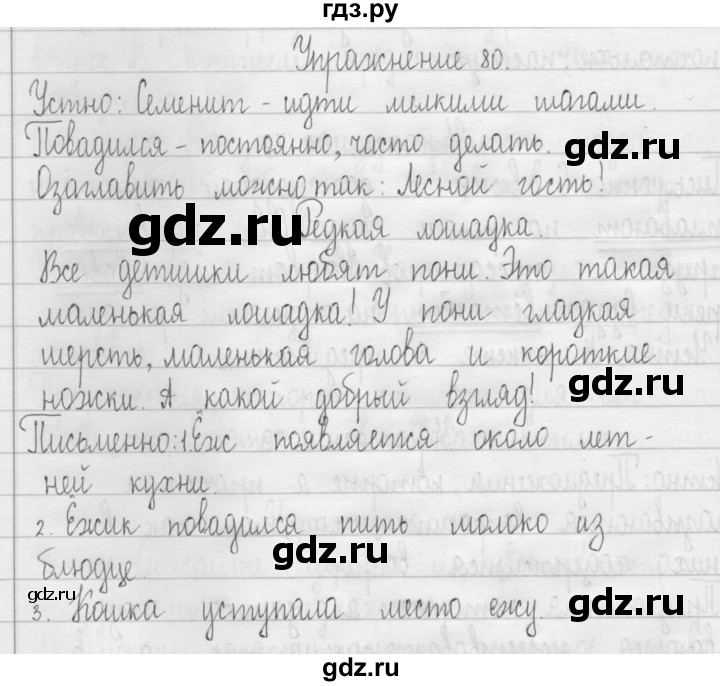 гдз.ру
Упражнение 80.
Устно: Семенит - идти мелкими шагами.
Повадился - постоянно, часто делать.
gdz.ru
Озаглавить можно так: Лесной гость!
gdz.ru
gdz.ru
Редкая лошадка.
Все детишки любят пони. Это такая
gdz.ru
маленькая лошадка! У пони гладкая
шерсть, маленькая голова и короткие
gdz.ru
ножки. А какой добрый взгляд!
Письменно: 1. Ёж появляется около лет-
ней кухни.
2. Ёжик повадился пить молоко из
gdz.ru
блюдце
gdz.ru
3. Кошка уступала место ежу.
gdz.ru
gdz.ru